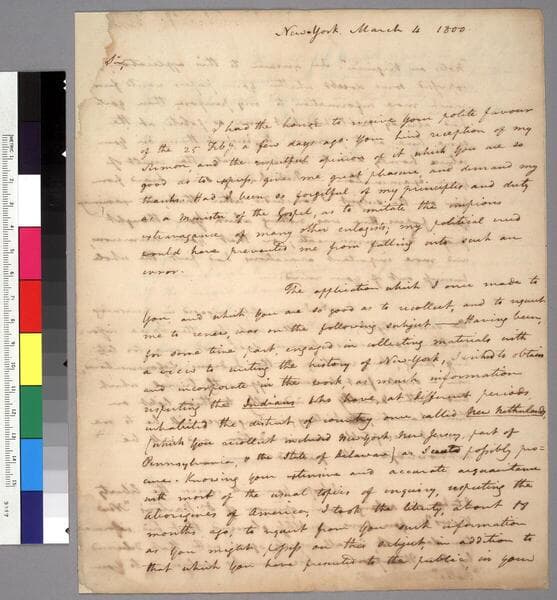 New-York, March 4 1800.
Sir,
I had the honor to receive your polite favour
of the 25 Feby a few days ago. Your kind reception of my
Sermon, and the respectful opinion of it which you are so
good as to express, give me great pleasure, and demand my
thanks. Had I been so forgetful of my principles and duty
as a Minister of the Gospel, as to imitate the impious
extravagance of many other eulogists; my political creed
would have prevented me from falling into such an
error.
The application which I once made to
you and which you are so good as to recollect, and to request
me to renew, was on the following subject — Having been,
for some time past, engaged in collecting materials with
a view to writing the history of New-York, I wished to obtain
and incorporate in the work, as much information
respecting the Indians who have, at different periods
inhabited the district of country once called New Netherlands
(which you recollect included New York, New Jersey, part of
Pennsylvania, & the State of Delaware) as I could possibly pro-
cure. Knowing your extensive and accurate acquaintance
with most of the usual topics of enquiry, respecting the
Aborigines of America, I took the liberty, about 18
months ago, to request from you such information
as you might possess on this subject, in addition to
that which you have presented to the public in your